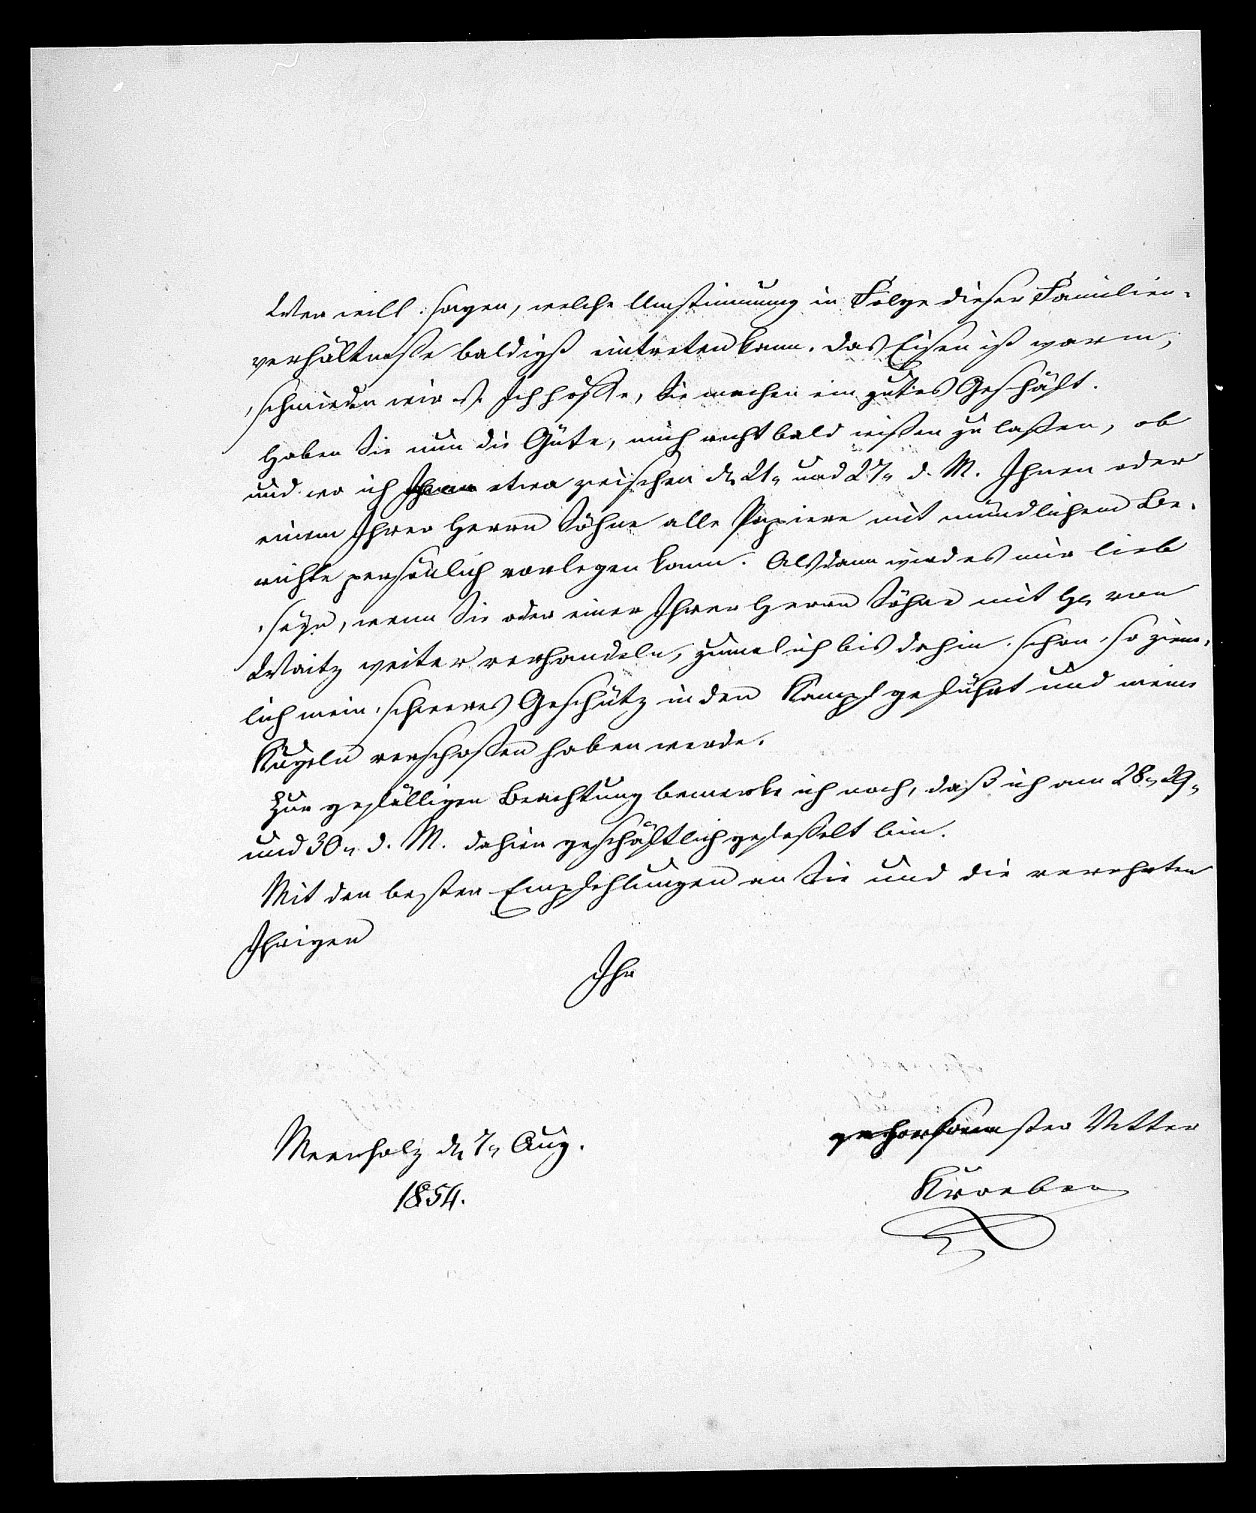 Wer will sagen, welche Umstimmung in Folge dieser Familien-
verhältnisse baldigst eintreten kann. Das Eisen ist warm,
schmieden wir es. Ich hoffe, Sie machen ein gutes Geschäft.
Haben Sie nun die Güte, mich recht bald wißen zu laßen, ob
und wo ich etwa zwischen d. 21. und 27. d. M. Ihnen oder
einem Ihrer Herrn Söhne alle Papiere mit mündlichem Be-
richte persönlich vorlegen kann. Alsdann wird es mir lieb
seyn, wenn Sie oder einer Ihrer Herrn Söhne mit H. von
Waitz weiter verhandeln, zumal ich bis dahin schon so ziem-
lich mein schweres Geschütz in den Kampf geführt und meine
Kugeln verschoßen haben werde.
Zur gefälligen Beachtung bemerke ich noch, daß ich am 28. 29.
und 30. d. M. dahier geschäftlich gefeßelt bin.
Mit den besten Empfehlungen an Sie und die verehrten
Ihrigen
Ihr
gehorsamster Vetter
Meerholz d. 7. Aug.
1854.
Kroeber